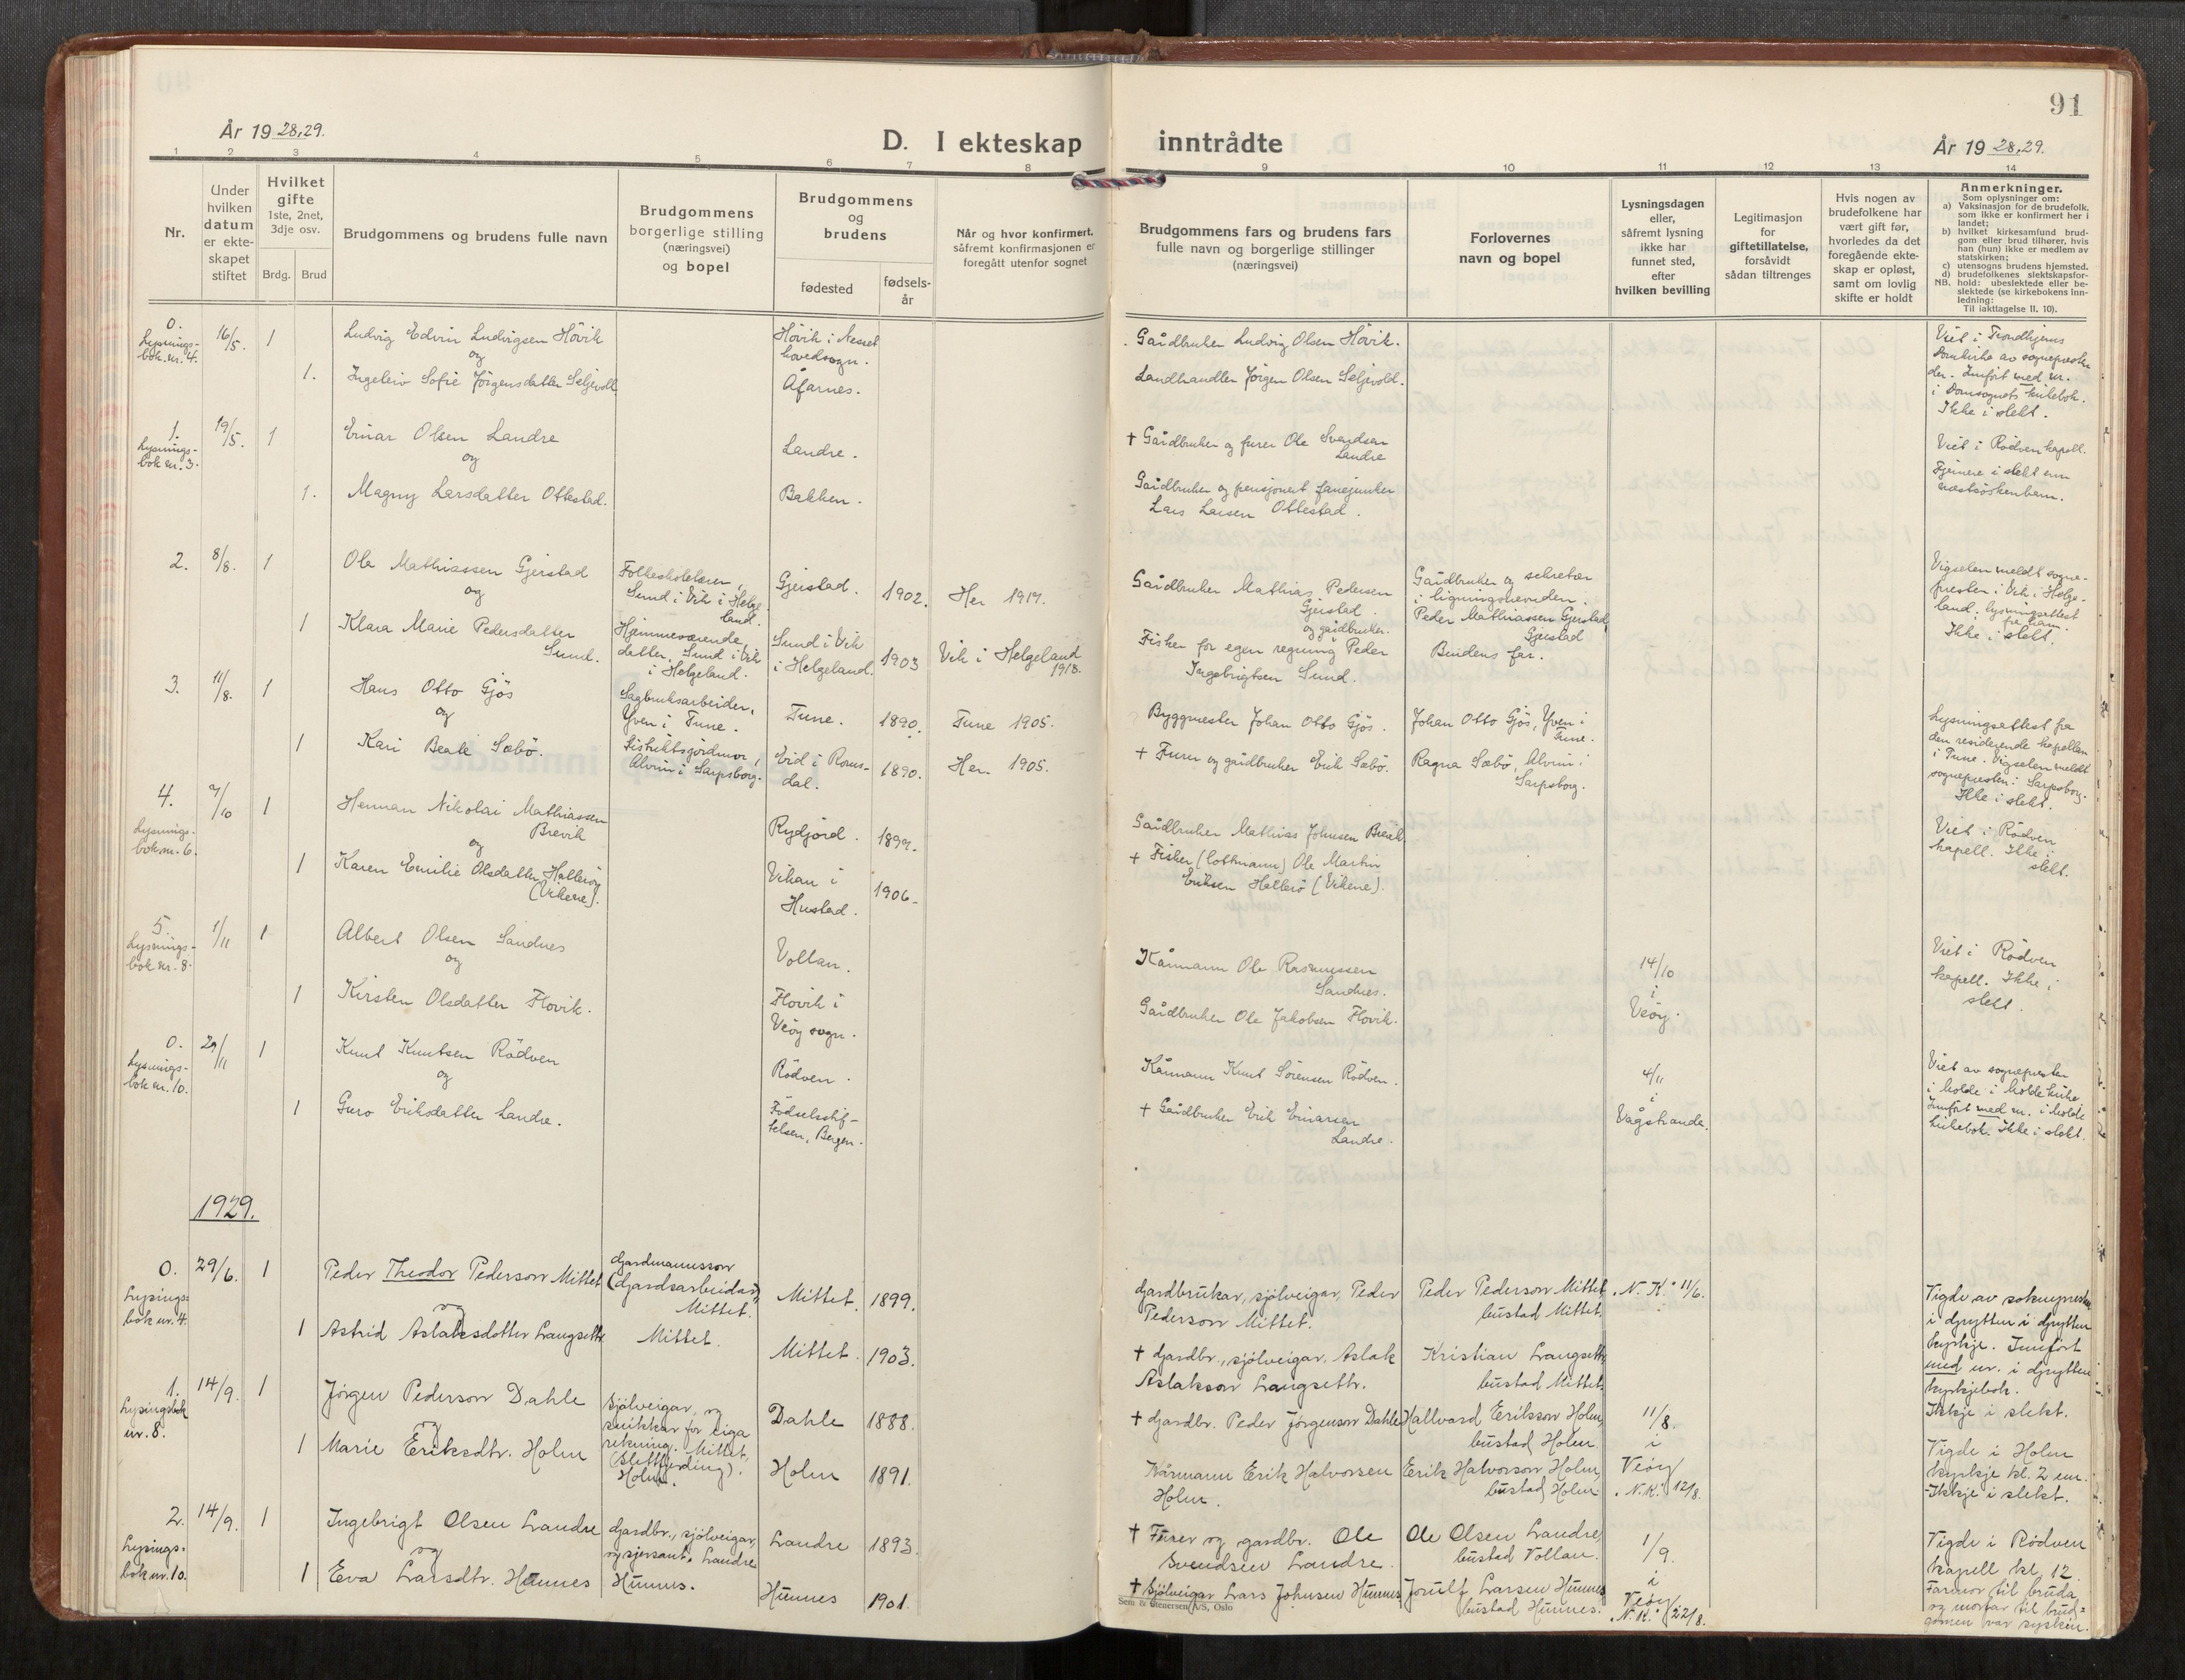 91
År 19 28, 29.
D. I ekteskap inntrådte
År 19 28, 29.
1 2 3 4 5 6 7 8 9 10 11 12 13 14
Nr.
Under hvilken datum er ekte-skapet stiftet
Hvilket gifte
1ste, 2net, 3dje osv.
Brdg. Brud
Brudgommens og brudens fulle navn
Brudgommens borgerlige stilling
(næringsvei)
og bopel
Brudgommens og brudens
fødested
fødsels-år
Når og hvor konfirmert,
såfremt konfirmasjonen er
foregått utenfor sognet
Brudgommens fars og brudens fars
fulle navn og borgerlige stillinger
(næringsvei)
Forlovernes
navn og bopel
Lysningsdagen
eller,
såfremt lysning
ikke har
funnet sted,
efter
hvilken bevilling
Legitimasjon
for
giftetillatelse,
forsåvidt
sådan tiltrenges
Hvis nogen av
brudefolkene har
vært gift før,
hvorledes da det
foregående ekte-
skap er opløst,
samt om lovlig
skifte er holdt
Anmerkninger.
Som oplysninger om:
a) Vaksinasjon for de brudefolk, som ikke er konfirmert her i landet;
b) hvilket kirkesamfund brud-gom eller brud tilhører, hvis han (hun) ikke er medlem av statskirken;
c) utensogns brudens hjemsted.
d) brudefolkenes slektskapsfor-
NB. hold: ubeslektede eller be-slektede (se kirkebokens inn-ledning:
Til iakttagelse II. 10).
0.
Lysnings-
bok nr. 4.
16/5. 1
Ludvig Edvin Ludvigsen Hövik
og
1. Ingeleiv Sofie Jörgensdatter Seljevoll
Hövik i Nesset
hovedsogn.
Åfarnes.
Gårdbruker Ludvig Olsen Hövik.
Landhandler Jörgen Olsen Seljevold.
Viet i Trondhjems
Domkirke av sognepresten
der. Innfört med nr.
i Domsognets kirkebok.
Ikke i slekt.
1.
Lysnings-
bok nr. 3.
19/5. 1
Einar Olsen Landre
og
1. Magny Larsdatter Ottestad.
Landre.
Bakken.
+ Gårdbruker og furer Ole Svendsen
Landre
Gårdbruker og pensjonert fanejunker
Lars Larsen Ottestad.
Viet i Rödven kapell.
Fjernere i slekt enn
næstsöskenbarn.
2. 8/8. 1
Ola Mathiassen Gjerstad
og
1 Klara Marie Pedersdatter
Sund.
Folkeskolelærer,
Sund i Vik i Helge-
land.
Hjemmeværende
datter, Sund i Vik
i Helgeland.
Gjerstad. 1902. Her 1917.
Sund i Vik
i Helgeland. 1903
Vik i Helgeland
1918.
Gårdbruker Mathias Pedersen
Gjerstad.
og gårdbruker.
Fisker for egen regning Peder
Ingebrigtsen Sund.
Gårdbruker og sekretær
i ligningsnevnden.
Peder Mathiassen Gjerstad,
Gjerstad
Brudens far.
Vigselen meldt sogne-
presten i Vik i Helge-
land. Lysningsattest
fra ham.
Ikke i slekt.
3. 11/8. 1
Hans Otto Gjös
og
1 Kari Beate Sæbö.
Sagbruksarbeider,
Yven i Tune.
Distriktsjordmor,
Alvim i Sarpsborg.
Tune. 1890. Tune 1905.
Eid i Roms-
dal. 1890. Her 1905.
Byggmester Johan Otto Gjös.
+ Furer og gårdbruker Erik Sæbö.
Johan Otto Gjös, Yven i
Tune.
Ragna Sæbö, Alvim i
Sarpsborg.
Lysningsattest fra
den residerende kapellan
i Tune. Vigselen meldt
sognepresten i Sarpsborg.
Ikke i slekt.
4.
Lysnings-
bok nr. 6.
7/10 1
Herman Nikolai Mathiassen
Brevik
og
1 Karen Emilie Olsdatter Halleröy
(Vikene).
Rydjord. 1899.
Vikan i
Hustad. 1906.
Gårdbruker Mathias Johnsen Brevik
+ Fisker (lottmann) Ole Martin
Eriksen Hallerö (Vikene).
Viet i Rödven
kapell. Ikke i
slekt.
5.
Lysnings-
bok nr. 8.
1/11 1
Albert Olsen Sandnes
og
1 Kirsten Olsdatter Flovik.
Vollan.
Flovik i
Veöy sogn.
Kårmann Ole Rasmussen
Sandnes.
Gårdbruker Ole Jakobsen Flovik.
14/10
i
Veöy.
Viet i Rödven
kapell. Ikke i
slekt.
0.
Lysnings-
bok nr. 10.
29/11 1
Knut Knutsen Rödven
og
1 Guro Eriksdatter Landre.
Rödven.
Födselsstif-
telsen, Bergen.
Kårmann Knut Sörensen Rödven.
+ Gårdbruker Erik Einarsen
Landre.
4/11
i
Vågstranda.
Viet av sognepresten
i Molde i Molde kirke
Innfört med nr. i Molde
kirkebok. Ikke i slekt.
1929.
0.
Lysings-
bok nr. 4.
29/6. 1
Peder Theodor Pederson Mittet
og
1 Astrid Aslaksdotter Langseth
Gardmannsson
(Gardsarbeidar)
Mittet.
Mittet.
Mittet. 1899.
Mittet. 1903.
Gardbrukar, sjölveigar, Peder
Pederson Mittet.
+ Gardbr., sjölveigar, Aslak
Aslakson Langseth.
Peder Pederson Mittet,
bustad Mittet.
Kristian Langseth,
bustad Mittet.
„N. K.“ 11/6.
Vigde av sokneprest
i Grytten i Grytten
kyrkje. Innfört
med nr. i Grytten
kyrkjebok.
Ikkje i slekt.
1.
Lysingsbok
nr. 8.
14/9. 1
Jörgen Pederson Dahle
og
1 Marie Eriksdtr. Holm
Sjölveigar, og
snikkar for eiga
rekning. Mittet,
Holm.
Dahle 1888.
Holm 1891.
+ Gardbr. Peder Jörgenson Dahle
Kårmann Erik Halvorsen
Holm.
Hallvard Erikson Holm,
bustad Holm.
Erik Halvorson Holm,
bustad Holm.
11/8.
i
Veöy
„N.K.“ 12/8.
Vigde i Holm
kyrkje kl. 2 em.
Ikkje i slekt.
2.
Lysings-
bok nr. 10.
14/9. 1
Ingebrigt Olsen Landre
og
1 Eva Larsdtr. Hunnes
Gardbr., sjölveigar,
og sjersant. Landre
Hunnes.
Landre 1893.
Hunnes 1901.
+ Furer og gardbr. Ole
Svendsen Landre.
+ Sjölveigar Lars Johnsen Hunnes
Ole Olsen Landre,
bustad Vollan.
Jorulf Larsen Hunnes
bustad Hunnes.
1/9.
i
Veöy
„N.K.“ 22/8.
Vigde i Rödven
kapell kl. 12.
Farmor til bruda
og morfar til brud-
gomen var sysken.
Sem & Stenersen A/S, Oslo